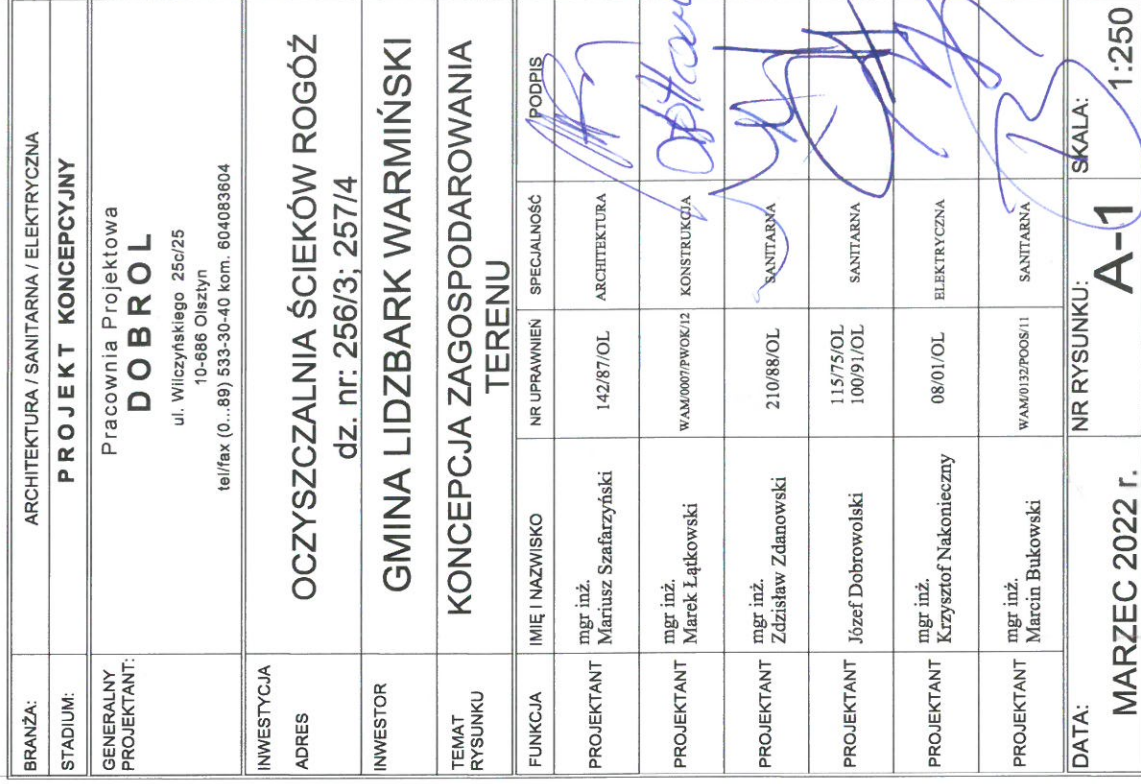 BRANŻA: ARCHITEKTURA / SANITARNA / ELEKTRYCZNA
STADIUM: PROJEKT KONCEPCYJNY
GENERALNY PROJEKTANT:
Pracownia Projektowa
DOBROL
ul. Wilczyńskiego 25c/25
10-686 Olsztyn
tel/fax (0...89) 533-30-40 kom. 604083604
INWESTYCJA
ADRES
OCZYSZCZALNIA ŚCIEKÓW ROGÓŻ
dz. nr: 256/3; 257/4
INWESTOR GMINA LIDZBARK WARMIŃSKI
TEMAT RYSUNKU
KONCEPCJA ZAGOSPODAROWANIA
TERENU
FUNKCJA IMIĘ I NAZWISKO NR UPRAWNIEŃ SPECJALNOŚĆ PODPIS
PROJEKTANT mgr inż. Mariusz Szafarzyński 142/87/OL ARCHITEKTURA
PROJEKTANT mgr inż. Marek Łątkowski WAM/0007/PWOK/12 KONSTRUKCJA
PROJEKTANT mgr inż. Zdzisław Zdanowski 210/88/OL SANITARNA
PROJEKTANT Józef Dobrowolski 115/75/OL 100/91/OL SANITARNA
PROJEKTANT mgr inż. Krzysztof Nakonieczny 08/01/OL ELEKTRYCZNA
PROJEKTANT mgr inż. Marcin Bukowski WAM/0132/POOS/11 SANITARNA
DATA: NR RYSUNKU: SKALA:
MARZEC 2022 r. A-1 1:250